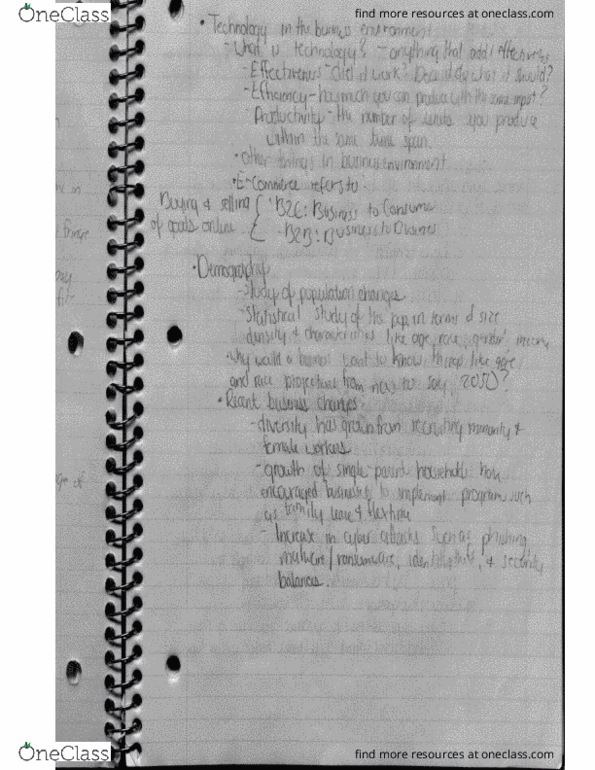 OneClass
find more resources at oneclass.com
• Technology in the business environment
- What is technology? - anything that adds effectiveness
- Effectiveness - did it work? Does it do what it should?
- Efficiency - how much you can produce with the same input?
Productivity - the number of units you produce
within the same time span.
• other things in business environment
• E-Commerce refers to
Buying & selling { • B2C: Business to Consumer
of goods online { • B2B: Business to Business
• Demography
- Study of population changes
- Statistical study of the pop in terms of size
density & characteristics like age, race, gender, income
• Why would a business want to know things like age
and race projections from now to say, 2050?
• Recent business changes
- diversity has grown from recruiting minority &
female workers
- growth of single-parent households has
encouraged businesses to implement programs such
as family leave & flextime
- Increase in cyber attacks such as phishing,
malware/ransomware, identity theft, & security
balances.
OneClass
find more resources at oneclass.com